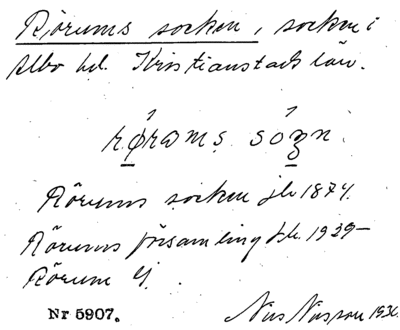 Rörums socken, socken i
Albo hd. Kristianstads län.
rø̱rams so̱ʒn.
Rörums socken jb 1874.
Rörums församling fsb. 1939–
Rörum
Nr 5907.
Nils Nilsson 193